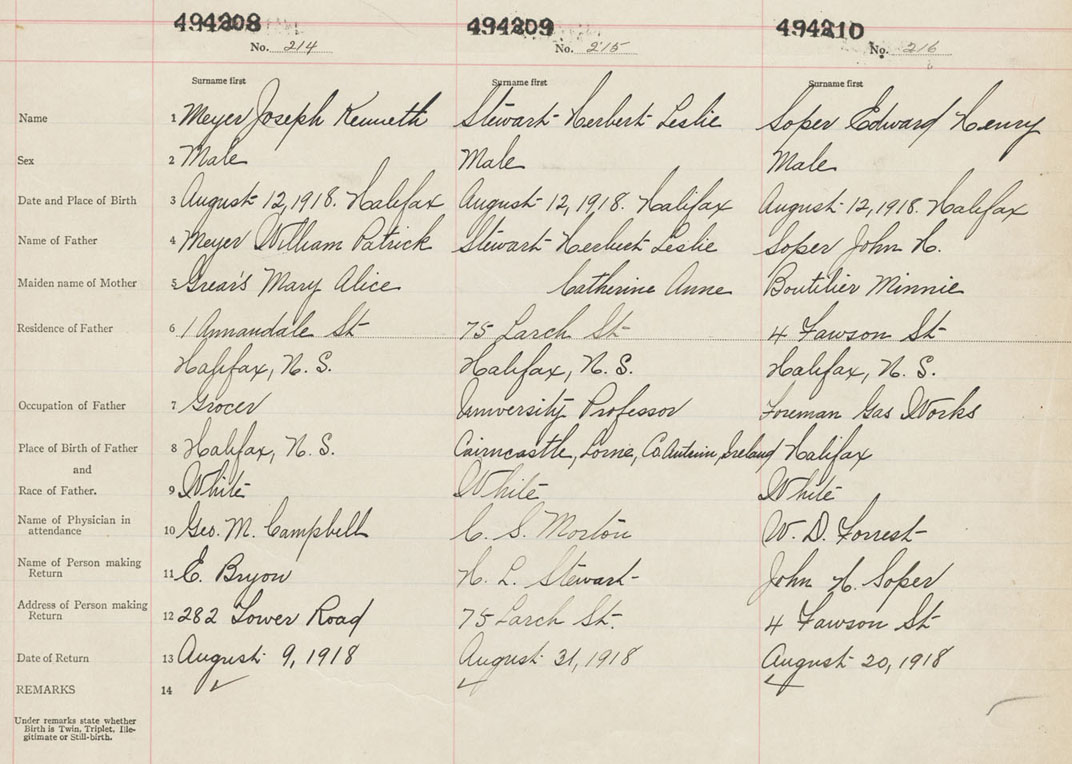 494208 494209 494210
No. 214 No. 215 No. 216
Surname first Surname first Surname first
Name 1 Meyer Joseph Kenneth Stewart Herbert Leslie Soper Edward Henry
Sex 2 Male Male Male
Date and Place of Birth 3 August 12, 1918. Halifax August 12, 1918. Halifax August 12, 1918. Halifax
Name of Father 4 Meyer William Patrick Stewart Herbert Leslie Soper John H.
Maiden name of Mother 5 Mary Alice Catherine Anne Boutilier Minnie
Residence of Father 6 1 Annandale St 75 Larch St 4 Lawson St
Halifax, N. S. Halifax, N. S. Halifax, N. S.
Occupation of Father 7 Grocer University Professor Foreman Gas Works
Place of Birth of Father 8 Halifax, N. S. Cairncastle, Larne, Co. Antrim, Ireland Halifax
and
Race of Father. 9 White White White
Name of Physician in
attendance 10 Geo. M. Campbell C. S. Morton W. D. Forrest
Name of Person making
Return 11 E. Bryon H. L. Stewart John H. Soper
Address of Person making
Return 12 282 Tower Road 75 Larch St. 4 Lawson St
Date of Return 13 August 9, 1918 August 31, 1918 August 20, 1918
REMARKS 14
Under remarks state whether
Birth is Twin, Triplet, Ille-
gitimate or Still-birth.